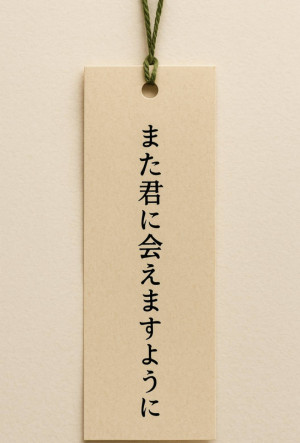 また君に会えますように